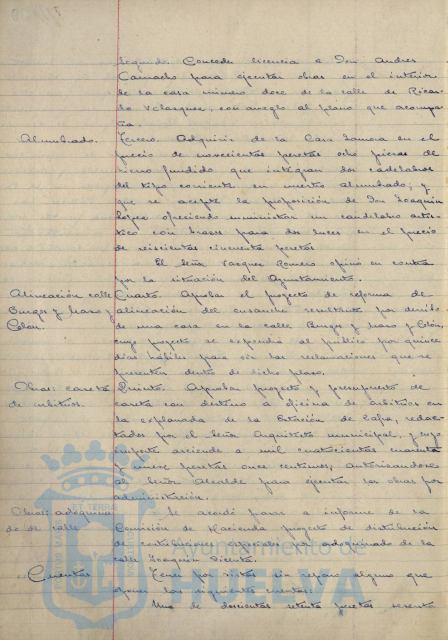 Segundo. Conceder licencia a Don Andres
Camacho para ejecutar obras en el interior
de la casa número doce de la calle de Ricar-
do Velazquez, con arreglo al plano que acompa-
ña.
Alumbrado. Tercero. Adquirir de la Casa Zamora en el
precio de novecientas pesetas ocho piezas de
hierro fundido que integran dos candelabros
del tipo corriente en nuestro alumbrado; y
que se acepte la proposición de Don Joaquin
López ofreciendo suministrar un candelabro artis-
tico con brazos para dos luces en el precio
de seiscientas cincuenta pesetas
El Señor Vazquez Romero opinó en contra
por la situación del Ayuntamiento.
Alineación calle Cuarto. Aprobar el proyecto de reforma de
Burgos y Mazo y alineación del ensanche resultante por derribo
Colón. de una casa en la calle Burgos y Mazo y Colón,
cuyo proyecto se expondrá al público por quince
dias hábiles para oir las reclamaciones que se
presenten dentro de dicho plazo.
Obras: caseta Quinto. Aprobar proyecto y presupuesto de
de arbitrios. caseta con destino a oficina de arbitrios en
la explanada de la Estación de Zafra, redac-
tados por el Señor Arquitecto municipal, y cuyo
importe asciende a mil cuatrocientas cuarenta
y nueve pesetas once centimos, autorizandose
al Señor Alcalde para ejecutar las obras por
administración.
Obras: adoquina- Se acordó pasar a informe de la
do de calle Comisión de Hacienda proyecto de distribución
de contribuciones especiales por adoquinado de la
calle Joaquin Dicenta.
Cuentas Tener por vistas sin reparo alguno que
oponer las siguientes cuentas:
Una de doscientas setenta pesetas sesenta
Ayuntamiento de
HUELVA